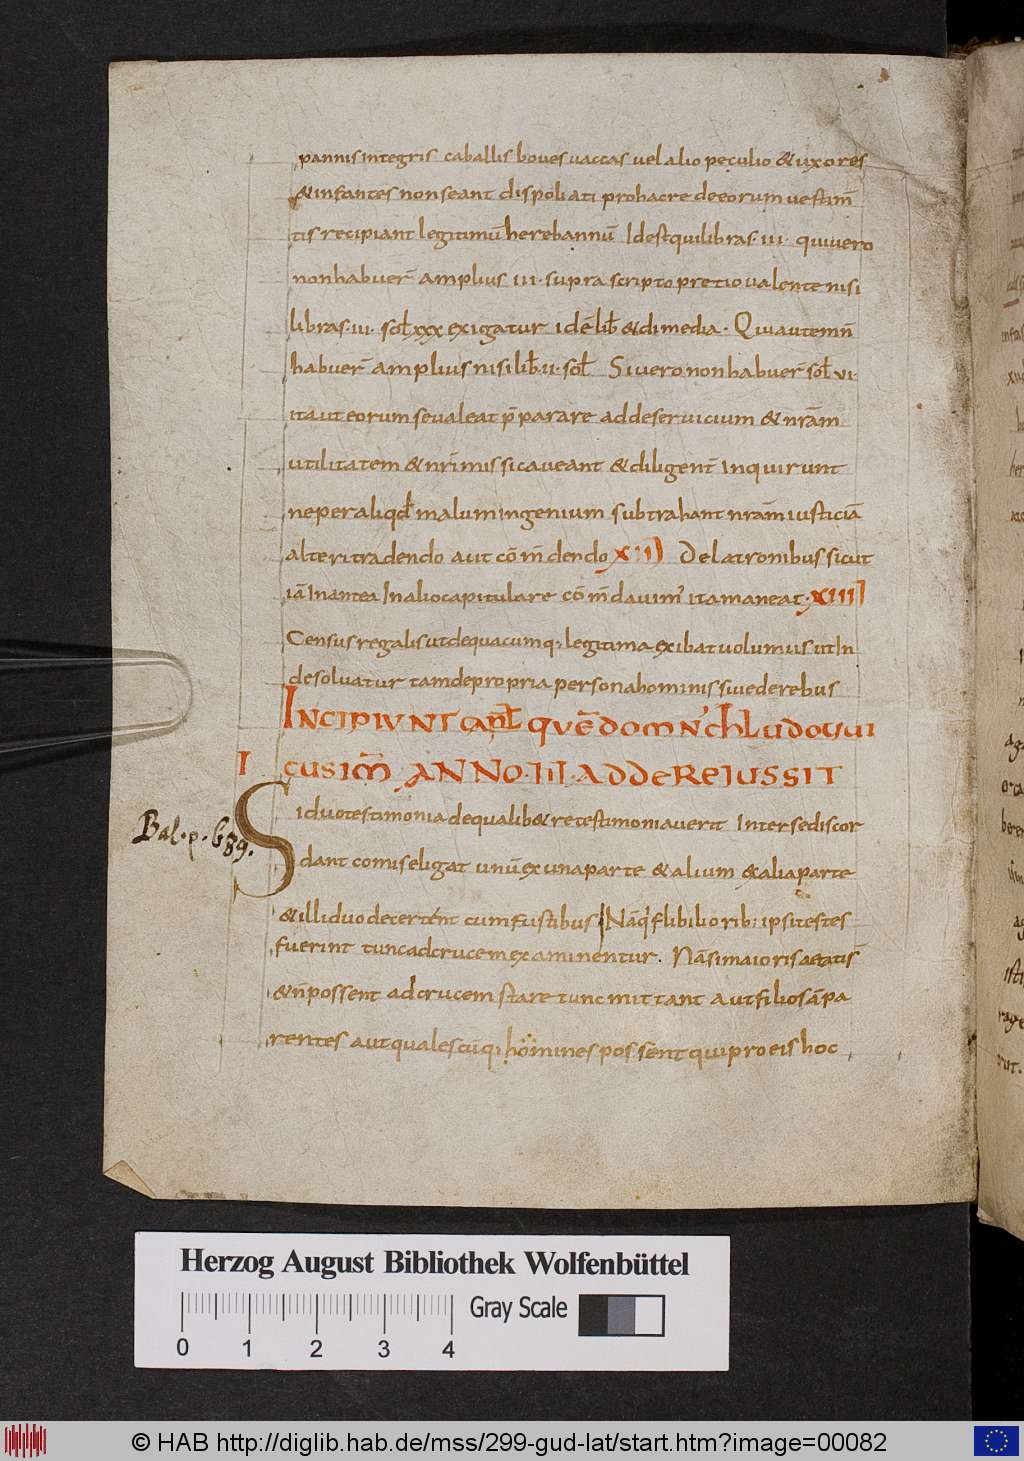 pannis integris caballis boues uaccas uel alio peculio & uxores
& infantes non seant dispoliati pro hac re de eorum uestim̄
tis recipiant legitimū herebannū Id est qui libras · III · qui uero
non habuer̄ amplius III · supra scripto pretio ualente nisi
libras · III · sol̄ xxx exigatur idē lib̄ & dimedia · Qui autem n̄
habuer̄ amplius nisi lib̄ · II · sol̄ Si uero non habuer̄ sol̄ VI ·
ita ut eorum se ualeat p̄parare ad dei seruicium & nr̄am
utilitatem & nr̄i missi caueant & diligent̄ Inquirunt
ne per aliqd̄ malum ingenium subtrahant nr̄am iusticiā
alteri tradendo aut cōm̄dendo XII De latronibus sicut
iā In antea In alio capitulare cōm̄dauim' ita maneat · XIII
Census regalis ut de quacumq; legitima exibat uolumus ut In
de soluatur tam de propria persona hominis siue de rebus
INCIPIUNT capt̄ quē domn' chLudouui
I cus im̄ ANNO · III · ADDERE IUSSIT
Si duo testimonia de qualib& re testimoniauerit Inter se discor
Bal. p. 689.
dant comis eligat unū ex una parte & alium & alia parte
& illi duo decertent cum fustibus Nāq' flibiliorib; ipsi testes
fuerint tunc ad crucem examinentur. Nā si maioris aetatis
& n̄ possent ad crucem stare tunc mittant aut filios ā pa
rentes aut qualescūq; homines possent qui pro eis hoc
Herzog August Bibliothek Wolfenbüttel
Gray Scale
0 1 2 3 4
© HAB http://diglib.hab.de/mss/299-gud-lat/start.htm?image=00082